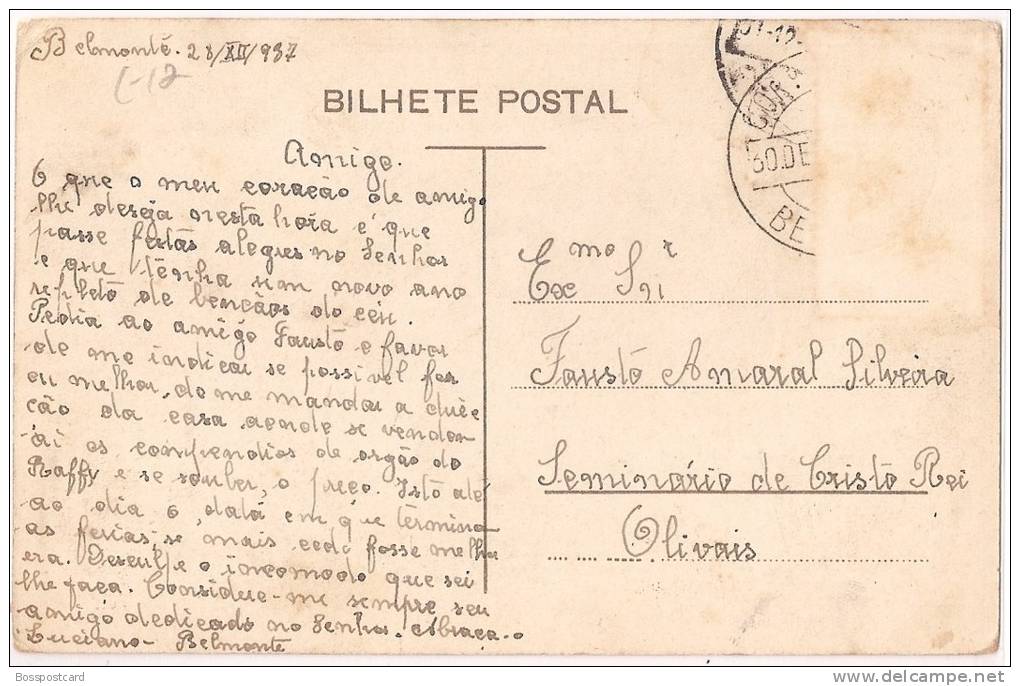 Belmonte. 28/XII/937
BILHETE POSTAL
Amigo.
O que o meu coração de amigo
lhe deseja nesta hora é que
passe festas alegres no Senhor
e que tenha um novo ano
repleto de bençãos do céu.
Pedia ao amigo Fausto o favor
de me indicar se possivel for
ou melhor, do me mandar a direc
ção da casa aonde se vendem
aí os compendios de orgão do
Raffy e se souber, o preço. Isto até
ao dia 6, data em que termina
as ferias, se mais cedo fosse melhor
era. Desculpe o incomodo que sei
lhe faça. Considere-me sempre seu
amigo dedicado no Senhor. Abraça-o
Luciano - Belmonte
30.DE
BE
Exmo Snr
Fausto Amaral Silveira
Seminário de Cristo Rei
Olivais
Bosspostcard
www.delcampe.net